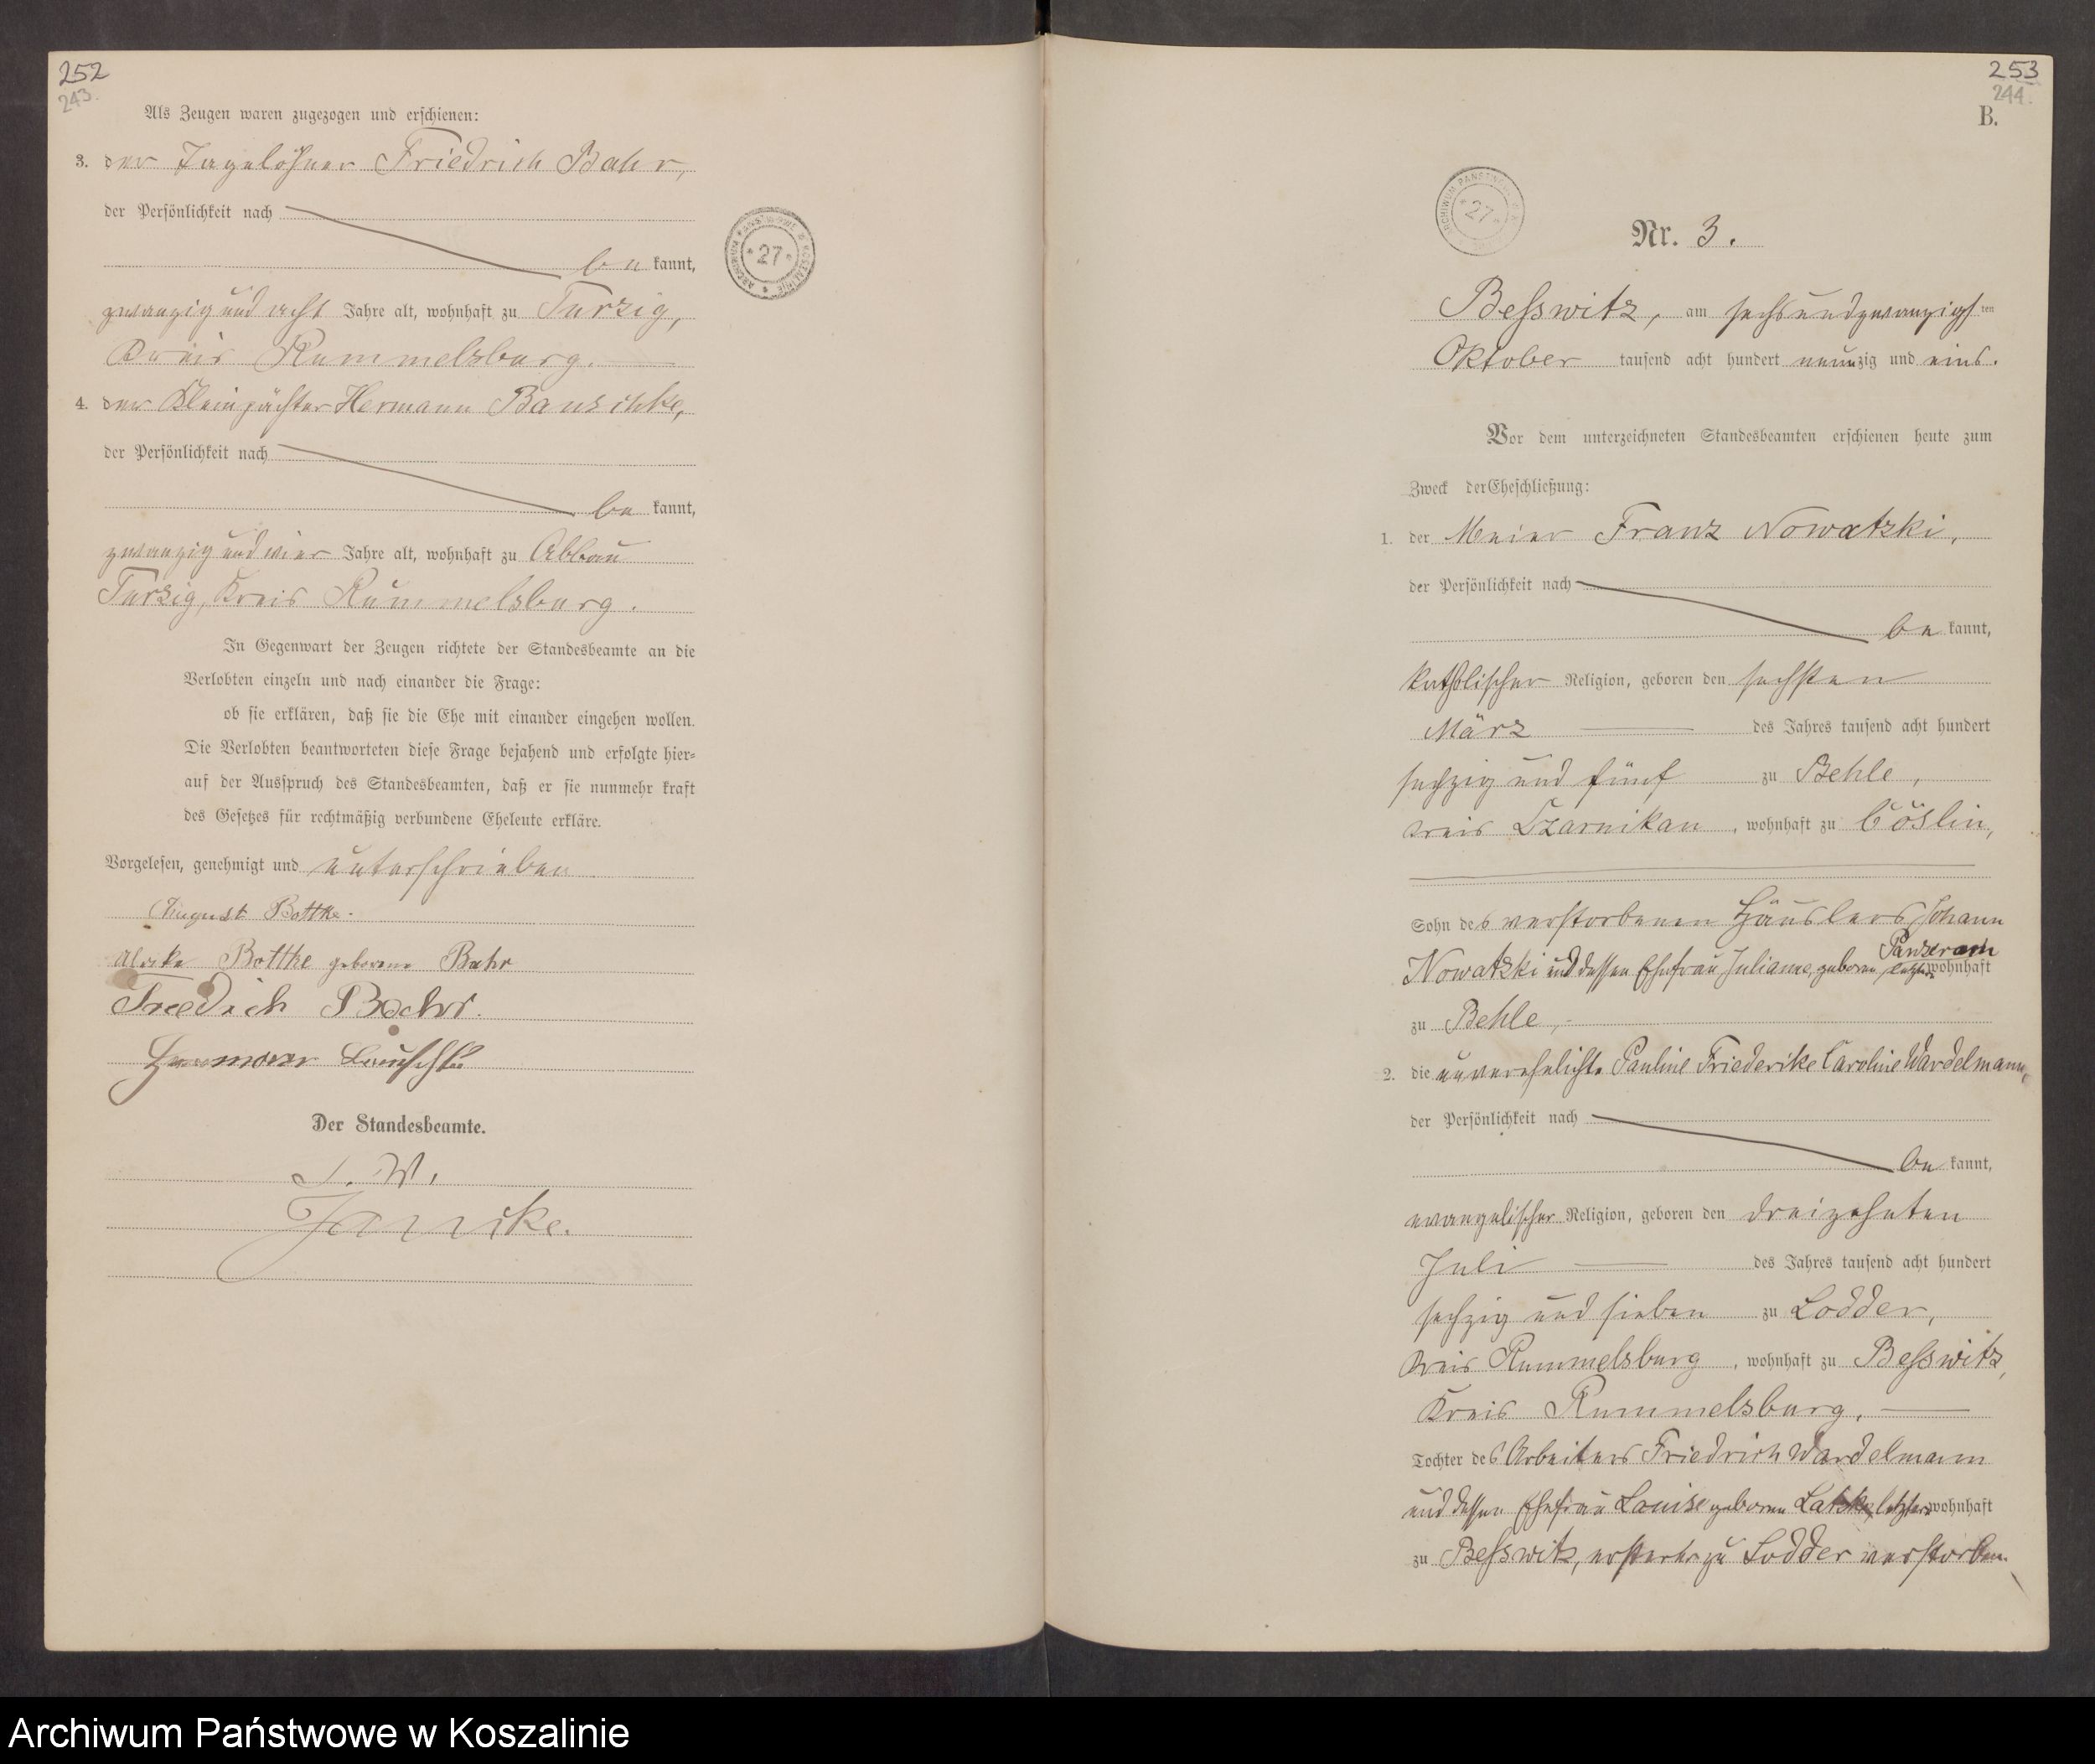 252
243.
Als Zeugen waren zugezogen und erschienen:
3. der Tagelöhner Friedrich Bahr,
der Persönlichkeit nach
be kannt,
zwanzig und acht Jahre alt, wohnhaft zu Turzig,
Kreis Rummelsburg.
4. der Kleinpächter Hermann Banschke,
der Persönlichkeit nach
be kannt,
zwanzig und vier Jahre alt, wohnhaft zu Abbau
Turzig, Kreis Rummelsburg.
In Gegenwart der Zeugen richtete der Standesbeamte an die
Verlobten einzeln und nach einander die Frage:
ob sie erklären, daß sie die Ehe mit einander eingehen wollen.
Die Verlobten beantworteten diese Frage bejahend und erfolgte hier=
auf der Ausspruch des Standesbeamten, daß er sie nunmehr kraft
des Gesetzes für rechtmäßig verbundene Eheleute erkläre.
Vorgelesen, genehmigt und unterschrieben
August Bottke.
Bottke geborene Bahr
Friedrich Bahr.
Der Standesbeamte.
J. V.
ARCHIWUM PAŃSTWOWE W KOSZALINIE
* 27 *
253
244.
B.
ARCHIWUM PAŃSTWOWE
* 27 *
Nr. 3.
Besswitz, am sechsundzwanzigsten
Oktober tausend acht hundert neunzig und eins.
Vor dem unterzeichneten Standesbeamten erschienen heute zum
Zweck der Eheschließung:
1. der Meier Franz Nowatzki,
der Persönlichkeit nach
be kannt,
katholischer Religion, geboren den sechsten
März des Jahres tausend acht hundert
sechzig und fünf zu Behle,
Kreis Czarnikau, wohnhaft zu Cöslin,
Sohn des verstorbenen Häuslers Johann
Panseram
Nowatzki und dessen Ehefrau Juliane, geboren letztere wohnhaft
zu Behle,
2. die unverehelichte Pauline Friederike Caroline Wardelmann,
der Persönlichkeit nach
be kannt,
evangelischer Religion, geboren den dreizehnten
Juli des Jahres tausend acht hundert
sechzig und sieben zu Lodder,
Kreis Rummelsburg, wohnhaft zu Besswitz,
Kreis Rummelsburg,
Tochter des Arbeiters Friedrich Wardelmann
und dessen Ehefrau Louise geboren Latzke, letztere wohnhaft
zu Besswitz, ersterer zu Lodder verstorben.
Archiwum Państwowe w Koszalinie